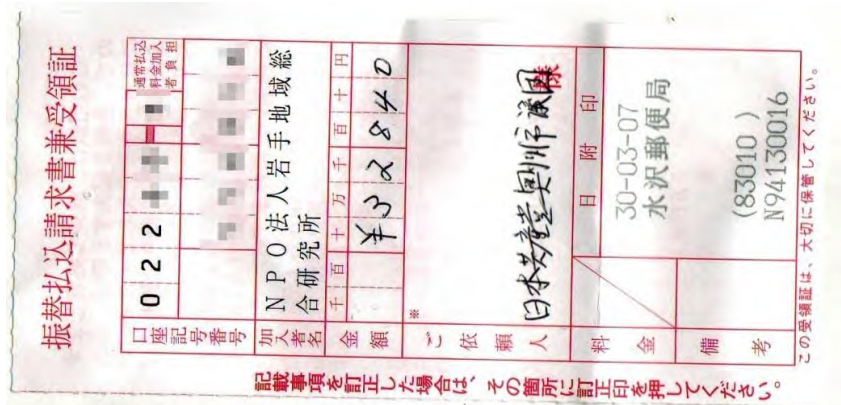 振替払込請求書兼受領証
口座記号番号
022
通常払込料金加入者負担
加入者名
NPO法人岩手地域総
合研究所
金額
千百十万千百十円
¥32840
ご依頼人
※
日本共産党奥州市議団様
料金
日附印
30-03-07
水沢郵便局
備考
(83010 )
N94130016
この受領証は、大切に保管してください。
記載事項を訂正した場合は、その箇所に訂正印を押してください。